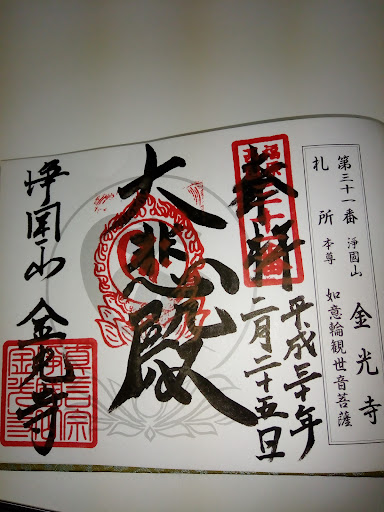 第三十一番 浄國山 金光寺
札所本尊 如意輪観世音菩薩
奉拝
平成三十年
二月二十五日
大悲殿
浄国山 金光寺